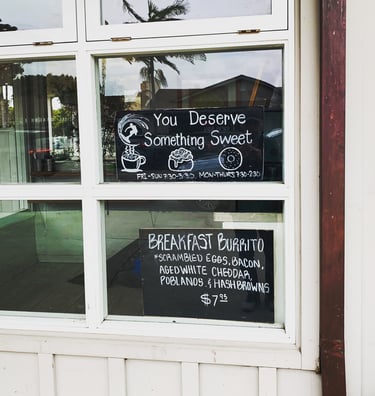 You Deserve
Something Sweet
FRI-SUN 7:30-3:30 MON-THURS 7:30-2:30
BREAKFAST BURRITO
*SCRAMBLED EGGS, BACON,
AGED WHITE CHEDDAR,
POBLANOS, & HASHBROWNS
$7.95